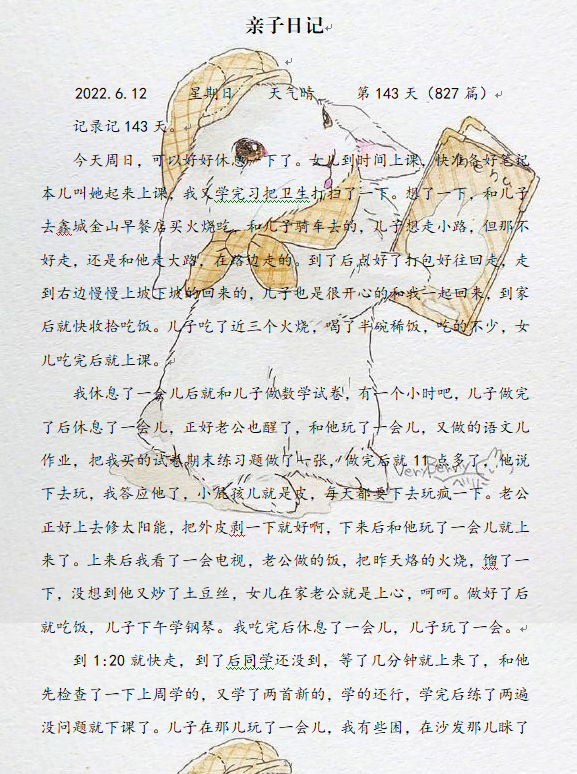 亲子日记
2022.6.12 星期日 天气晴 第 143 天（827 篇）
记录记 143 天。
今天周日，可以好好休息一下了。女儿到时间上课，快准备好笔记
本儿叫她起来上课，我又学完习把卫生打扫了一下。想了一下，和儿子
去鑫城金山早餐店买火烧吃，和儿子骑车去的，儿子想走小路，但那不
好走，还是和他走大路，在路边走的。到了后点好了打包好往回走，走
到右边慢慢上坡下坡的回来的，儿子也是很开心的和我一起回来，到家
后就快收拾吃饭。儿子吃了近三个火烧，喝了半碗稀饭，吃的不少，女
儿吃完后就上课。
我休息了一会儿后就和儿子做数学试卷，有一个小时吧，儿子做完
了后休息了一会儿，正好老公也醒了，和他玩了一会儿，又做的语文儿
作业，把我买的试卷期末练习题做了一张，做完后就 11 点多了，他说
下去玩，我答应他了，小屁孩儿就是皮，每天都要下去玩疯一下。老公
正好上去修太阳能，把外皮剥一下就好啊，下来后和他玩了一会儿就上
来了。上来后我看了一会电视，老公做的饭，把昨天烙的火烧，馏了一
下，没想到他又炒了土豆丝，女儿在家老公就是上心，呵呵。做好了后
就吃饭，儿子下午学钢琴。我吃完后休息了一会儿，儿子玩了一会。
到 1:20 就快走，到了后同学还没到，等了几分钟就上来了，和他
先检查了一下上周学的，又学了两首新的，学的还行，学完后练了两遍
没问题就下课了。儿子在那儿玩了一会儿，我有些困，在沙发那儿眯了